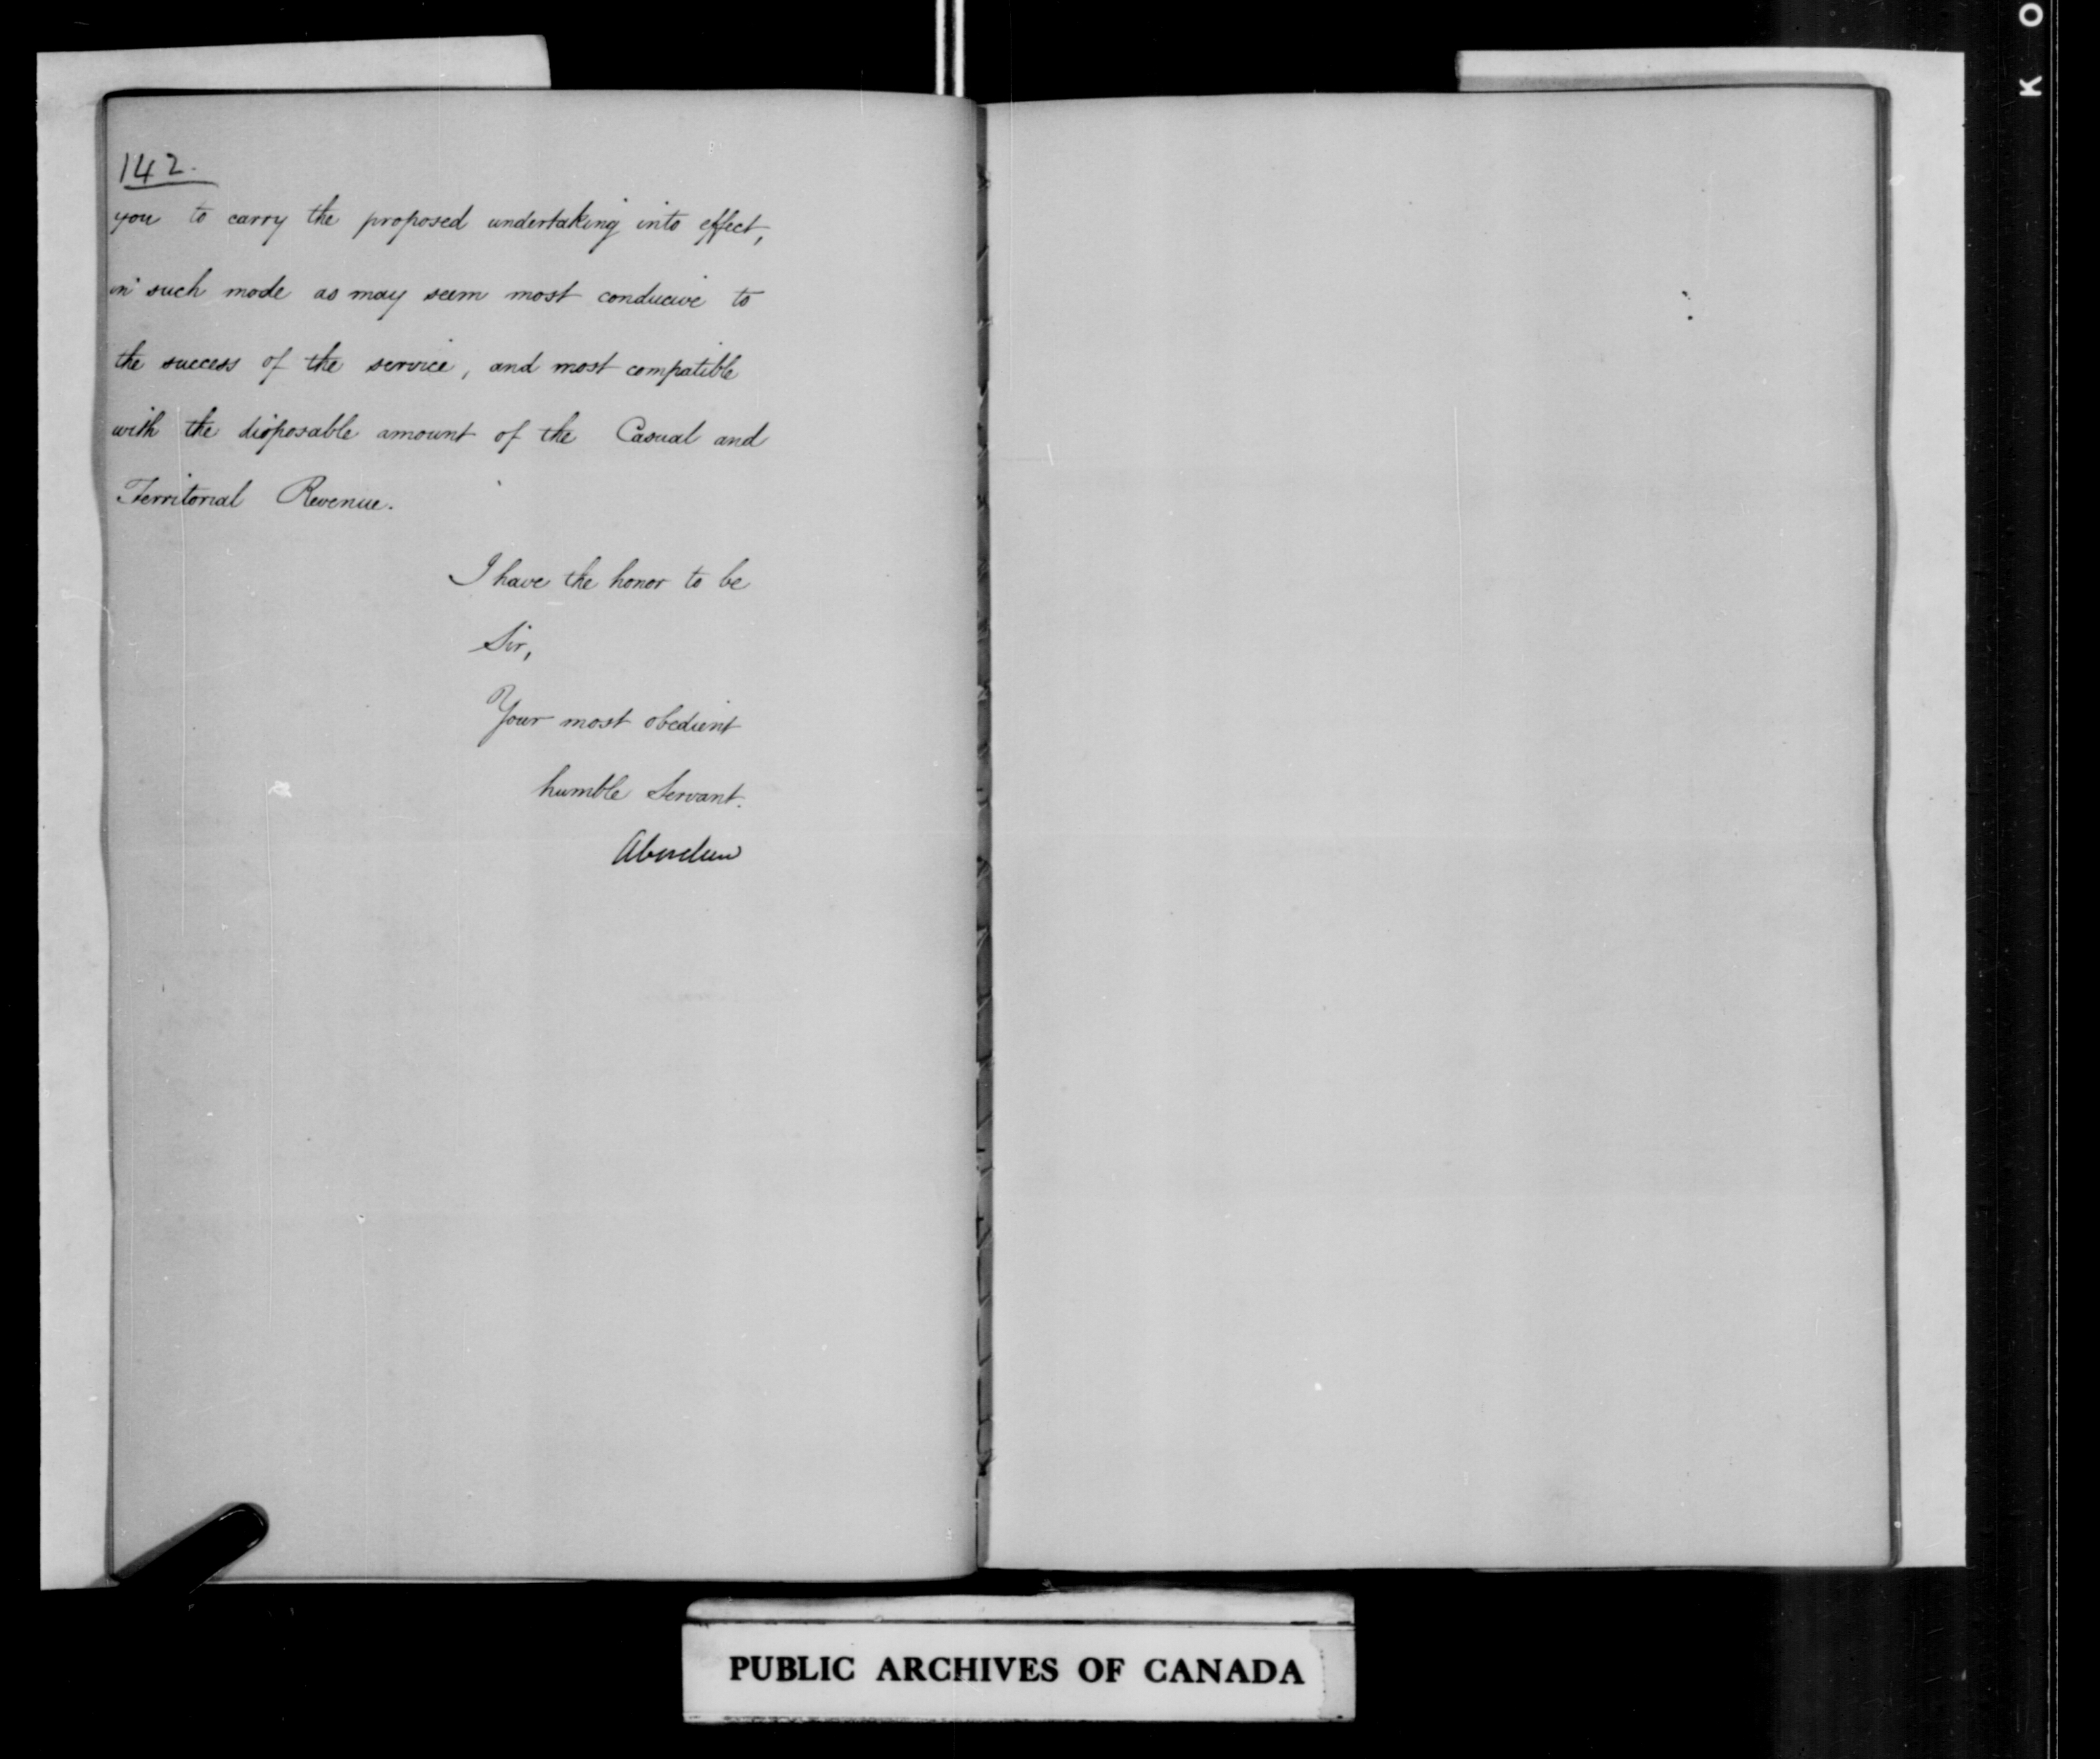 142.
you to carry the proposed undertaking into effect,
in such mode as may seem most conducive to
the success of the service, and most compatible
with the disposable amount of the Casual and
Territorial Revenue.
I have the honor to be
Sir,
Your most obedient
humble Servant.
Aberdeen
PUBLIC ARCHIVES OF CANADA
K O